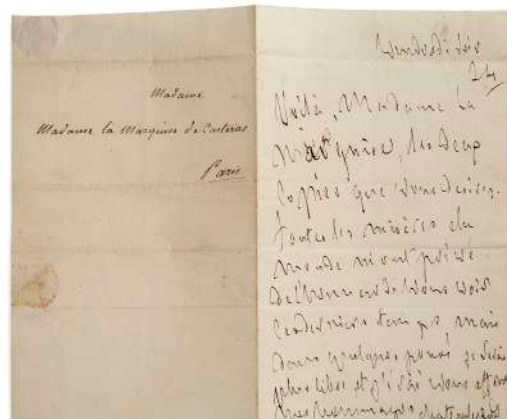 Madame
Madame la Marquise de Custine
Paris
Vendredi soir
24
Voilà, Madame la
Marquise, les deux
copies que vous desirez.
Toutes les misères du
monde m'ont privé
de l'honneur de vous voir
ces derniers temps, mais
dans quelques jours je serai
plus libre et j'irai vous offrir
mes hommages